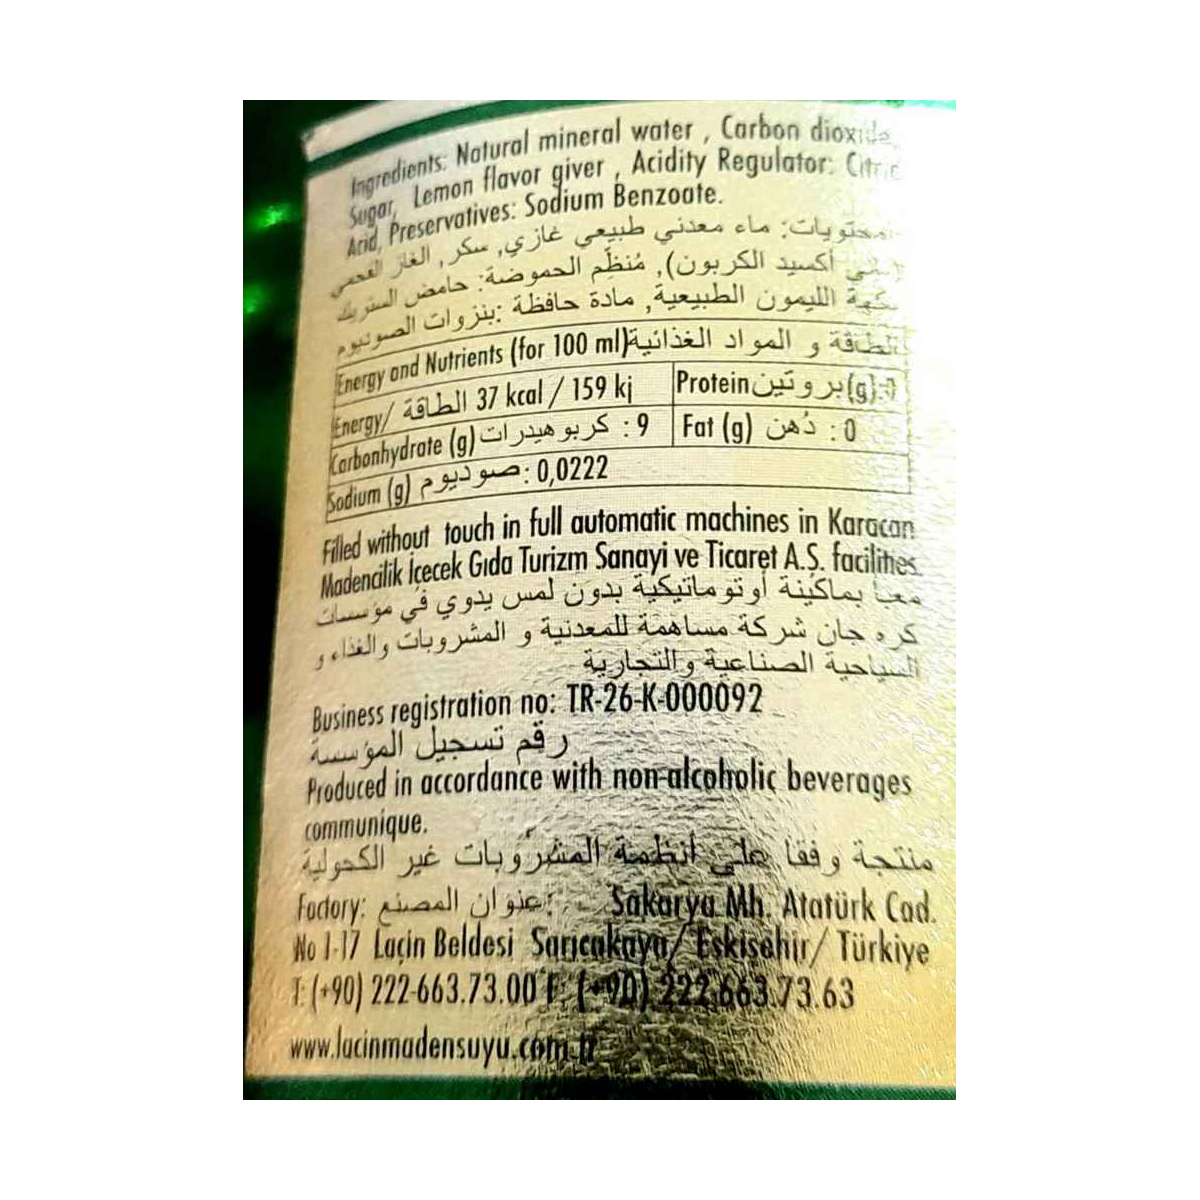 Ingredients: Natural mineral water , Carbon dioxide,
Sugar, Lemon flavor giver , Acidity Regulator: Citric
Acid, Preservatives: Sodium Benzoate.
محتويات: ماء معدني طبيعي غازي, سكر, الغاز الفحمي
أكسيد الكربون), مُنظِّم الحموضة: حامض الستريك
نكهة الليمون الطبيعية, مادة حافظة :بنزوات الصوديوم
Energy and Nutrients (for 100 ml) الطاقة و المواد الغذائية
Energy/ الطاقة 37 kcal / 159 kj Protein بروتين (g):
Carbonhydrate (g) كربوهيدرات : 9 Fat (g) دُهن : 0
Sodium (g) صوديوم : 0,0222
Filled without touch in full automatic machines in Karacan
Madencilik İçecek Gıda Turizm Sanayi ve Ticaret A.Ş. facilities.
معبا بماكينة أوتوماتيكية بدون لمس يدوي في مؤسسات
كره جان شركة مساهمة للمعدنية و المشروبات والغذاء و
السياحية الصناعية والتجارية
Business registration no: TR-26-K-000092
رقم تسجيل المؤسسة
Produced in accordance with non-alcoholic beverages
communique.
منتجة وفقا على أنظمة المشروبات غير الكحولية
Factory: عنوان المصنع: Sakarya Mh. Atatürk Cad.
No 1-17 Laçin Beldesi Sarıcakaya/ Eskişehir/ Türkiye
T: (+90) 222-663.73.00 F: (+90) 222 663.73.63
www.lacinmadensuyu.com.tr